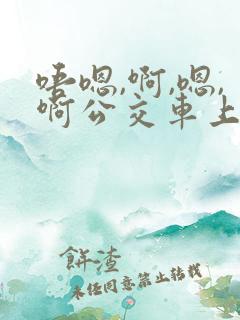 唔嗯,啊,嗯,
啊公交車上
餅渣
未经同意禁止转载